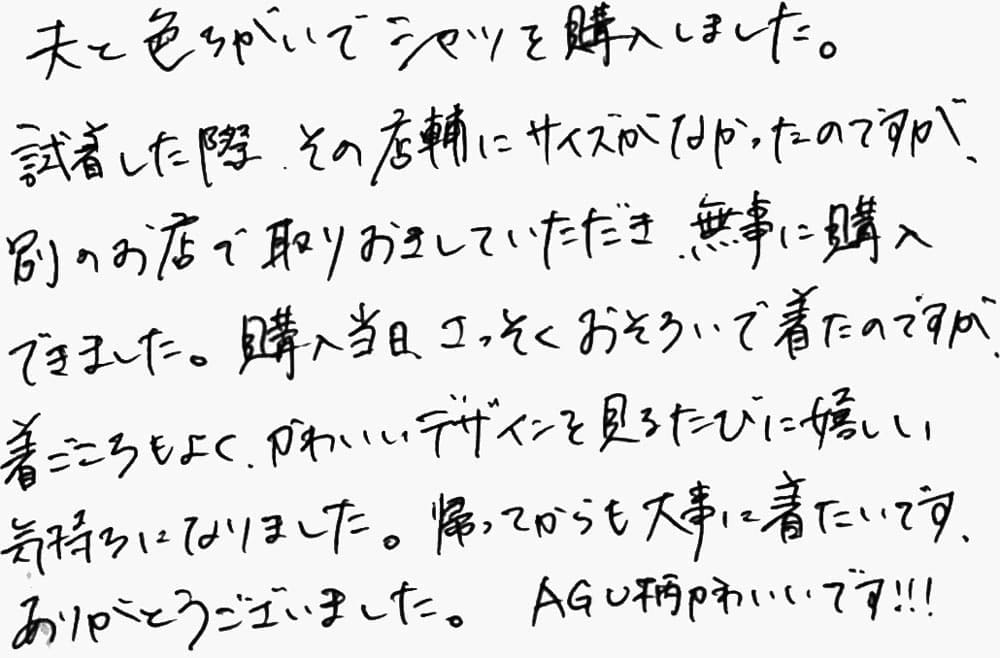 夫と色ちがいでシャツを購入しました。
試着した際、その店輔にサイズがなかったのですが、
別のお店で取りおきしていただき、無事に購入
できました。購入当日、さっそくおそろいで着たのですが、
着ごこちもよく、かわいいデザインを見るたびに嬉しい
気持ちになりました。帰ってからも大事に着たいです、
ありがとうございました。 AGU柄かわいいです!!!